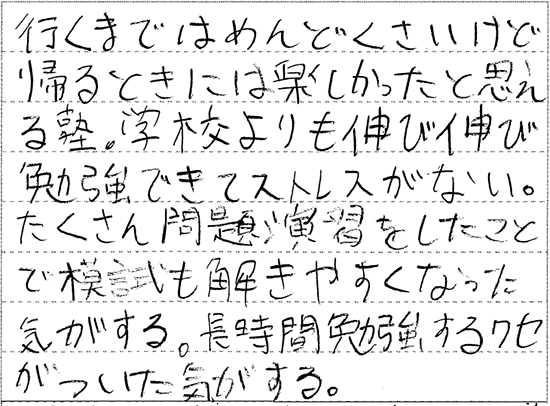 行くまではめんどくさいけど
帰るときには楽しかったと思え
る塾。学校よりも伸び伸び
勉強できてストレスがない。
たくさん問題演習をしたこと
で模試も解きやすくなった
気がする。長時間勉強するクセ
がついた気がする。